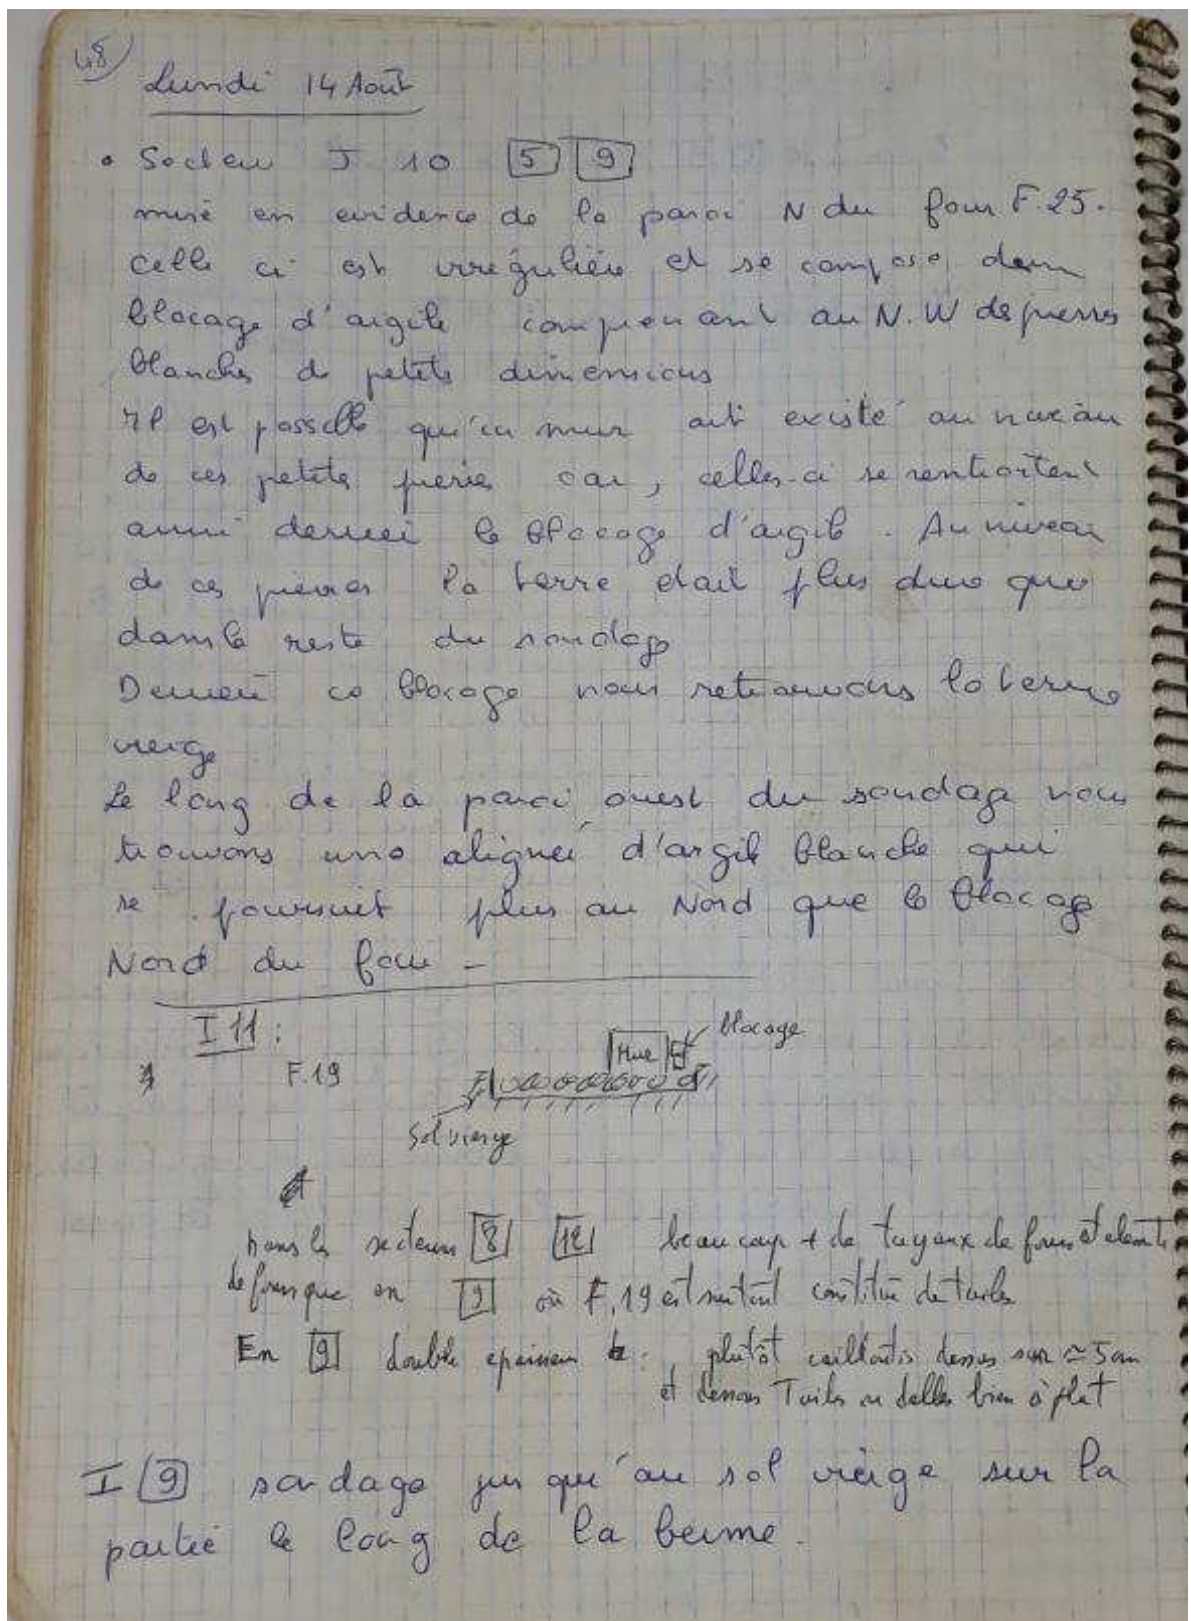 48
Lundi 14 Août
• Secteur J 10 [5] [9]
mise en evidence de la paroi N du four F.25.
celle ci est irrégulière et se compose d'un
blocage d'argile comprenant au N.W des pierres
blanches de petits dimensions
Il est possible qu'un mur ait existé au niveau
de ces petites pierres car, celles-ci se
aussi derriere le blocage d'argile. Au niveau
de ces pierres la terre etait plus dure que
dans le reste du sondage
Derriere ce blocage nous retrouvons la terre
vierge
Le long de la paroi ouest du sondage nous
trouvons une alignée d'argile blanche qui
se poursuit plus au Nord que le blocage
Nord du four -
I 11 :
F.19
Mur
blocage
Sol vierge
Dans les secteurs [8] [12] beaucoup + de tuyaux de fours et elements
de fours que en [9] où F.19 est surtout constitué de tuiles
En [9] double epaisseur : plutôt cailloutis dessus sur ≃ 5 cm
et dessous Tuiles ou dalles bien à plat
I [9] sondage jusqu'au sol vierge sur la
partie le long de la berme.